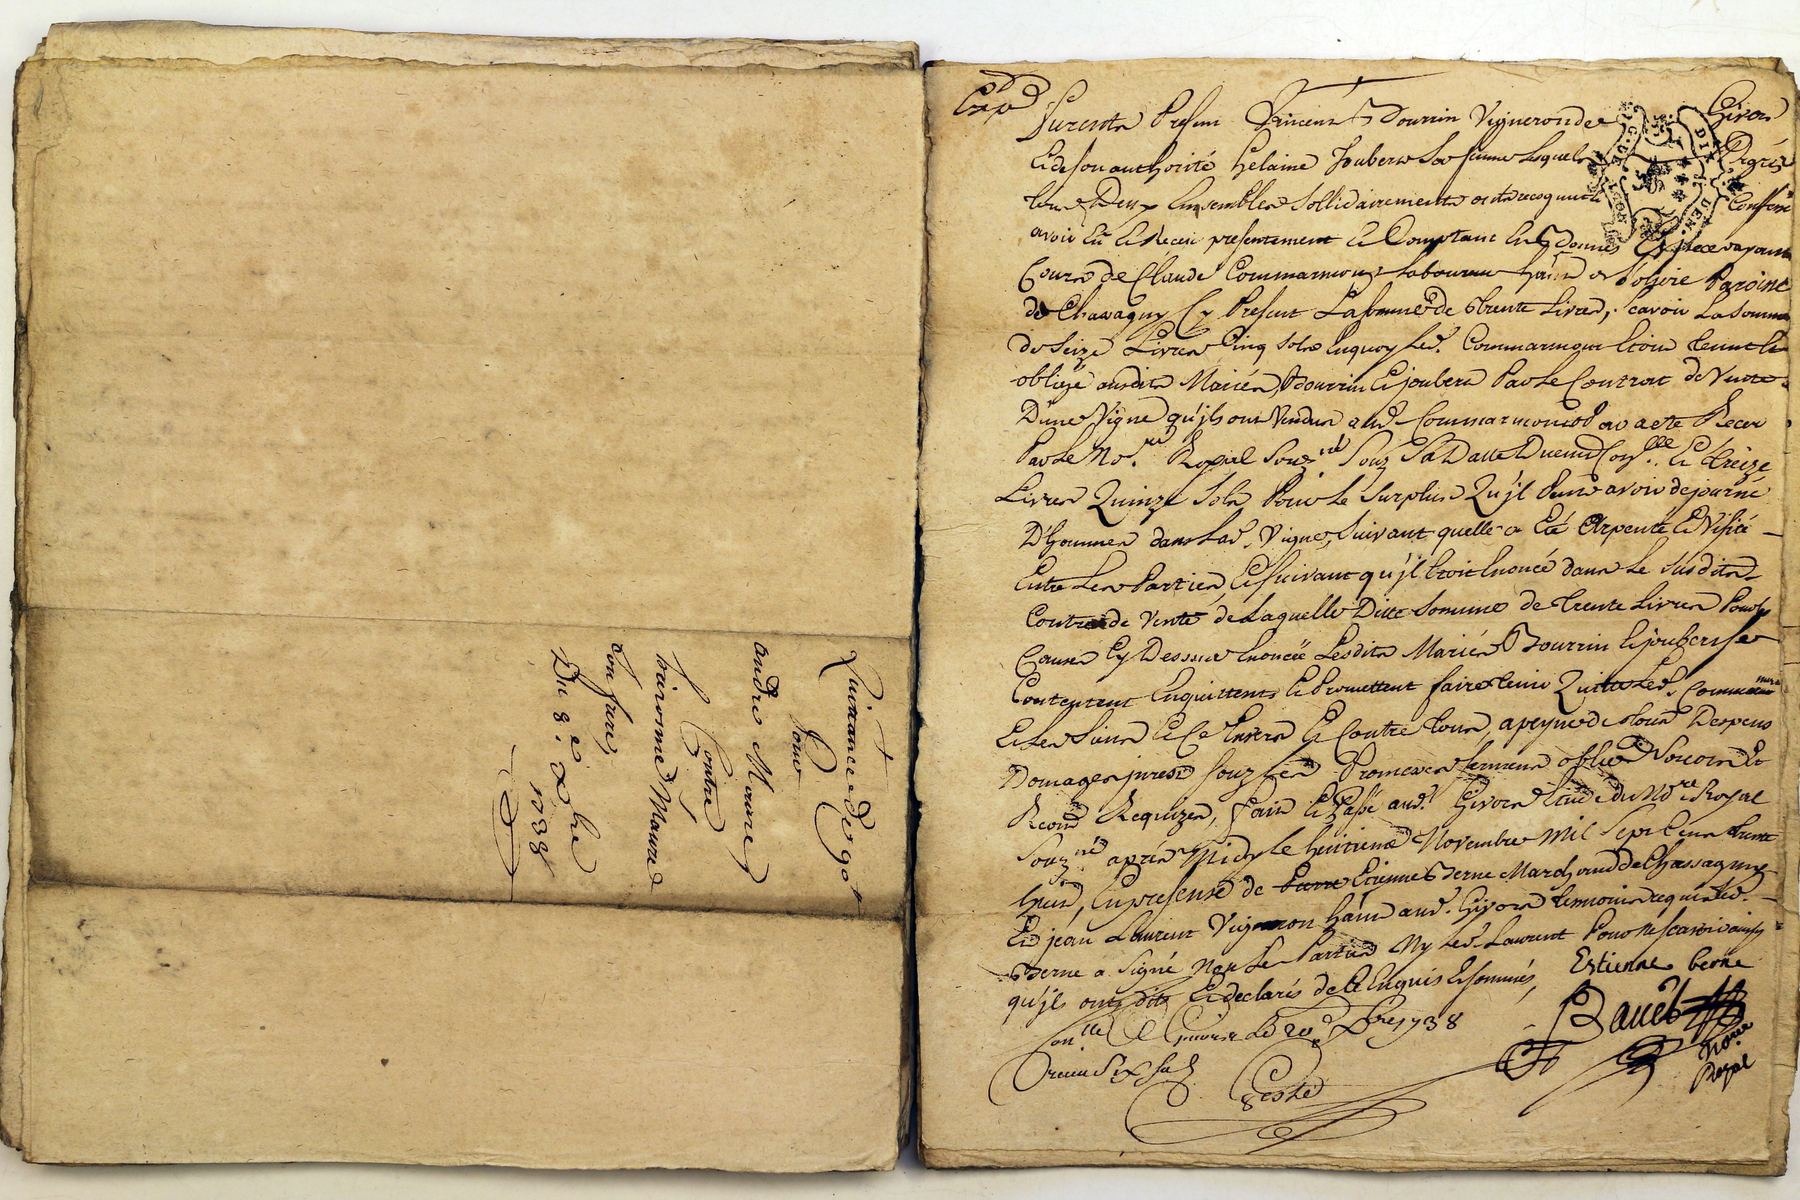 Quittance de
pour
andré Maurey
Contre
Maurey
son frere
Du 8e 9bre
1738
Expd
Furent Presens Vincent Bourrin Vigneron de Givors
Et de son authorité Helaine Joubert Sa femme Lesquels de gré
tous Deux Ensemble Sollidairement ont recognu Confessé
avoir Eü Et Receu presentement Et Comptant En bonnes Espece ayant
Cours de Claude Commarmont Laboureur hànt a Paroisse
de Chavagny Cy Present La somme de trente Livres, scavoir La somme
de Seize Livres Cinq sols Enquoy Led. Commarmont Etoit tenu Et
obligé ausdits Mariés Bourrin Et joubert Par Le Contrat de Vente
D'une Vigne qu'ils ont Vendue aud. Commarmont Par acte Receu
Par Le Nore Royal Souzné Souz Sa Datte Duemt Conlle Et treize
Livres Quinze Sols Pour Le Surplus Qu'jl Peut avoir de journé
D'hommes dans Lad. Vigne, Suivant quelle a Eté Arpenté Et Visité
Entre Les Parties, Et suivant qu'jl Etoit Enoncé dans Le Susdit
Contrat de Vente de Laquelle Ditte Somme de trente Livres Pour les
Causes Cy Dessus Enoncée Lesdits Mariés Bourrin Et joubert se
Contentent Enquittent Et Promettent faire tenir Quitte Led. Commarmont
Et Les Siens Et Ce Envers Et Contre tous, a peyne de tous Despens
Domages jnterests souz Les Promesses serment obligon Soumons Et
Renons Requizes, fait Et Passé aud. Givors Etude du Nore Royal
Souzné après Midy Le huitieme Novembre Mil Sept Cens trente
huit, En presense de Etienne Berne Marchand de Chassagny
Et jean Laurent Vigneron hànt aud. Givors temoins requis Led.
Berne a Signé Non Les Parties Ny Led. Laurent Pour Ne scavoir ainsy
qu'jls ont dit Et declarés de Ce Enquis Et sommés,
Estienne berne
Conllé a Givors Le 20e 9bre 1738
Receu Six sols
No.re
Royal